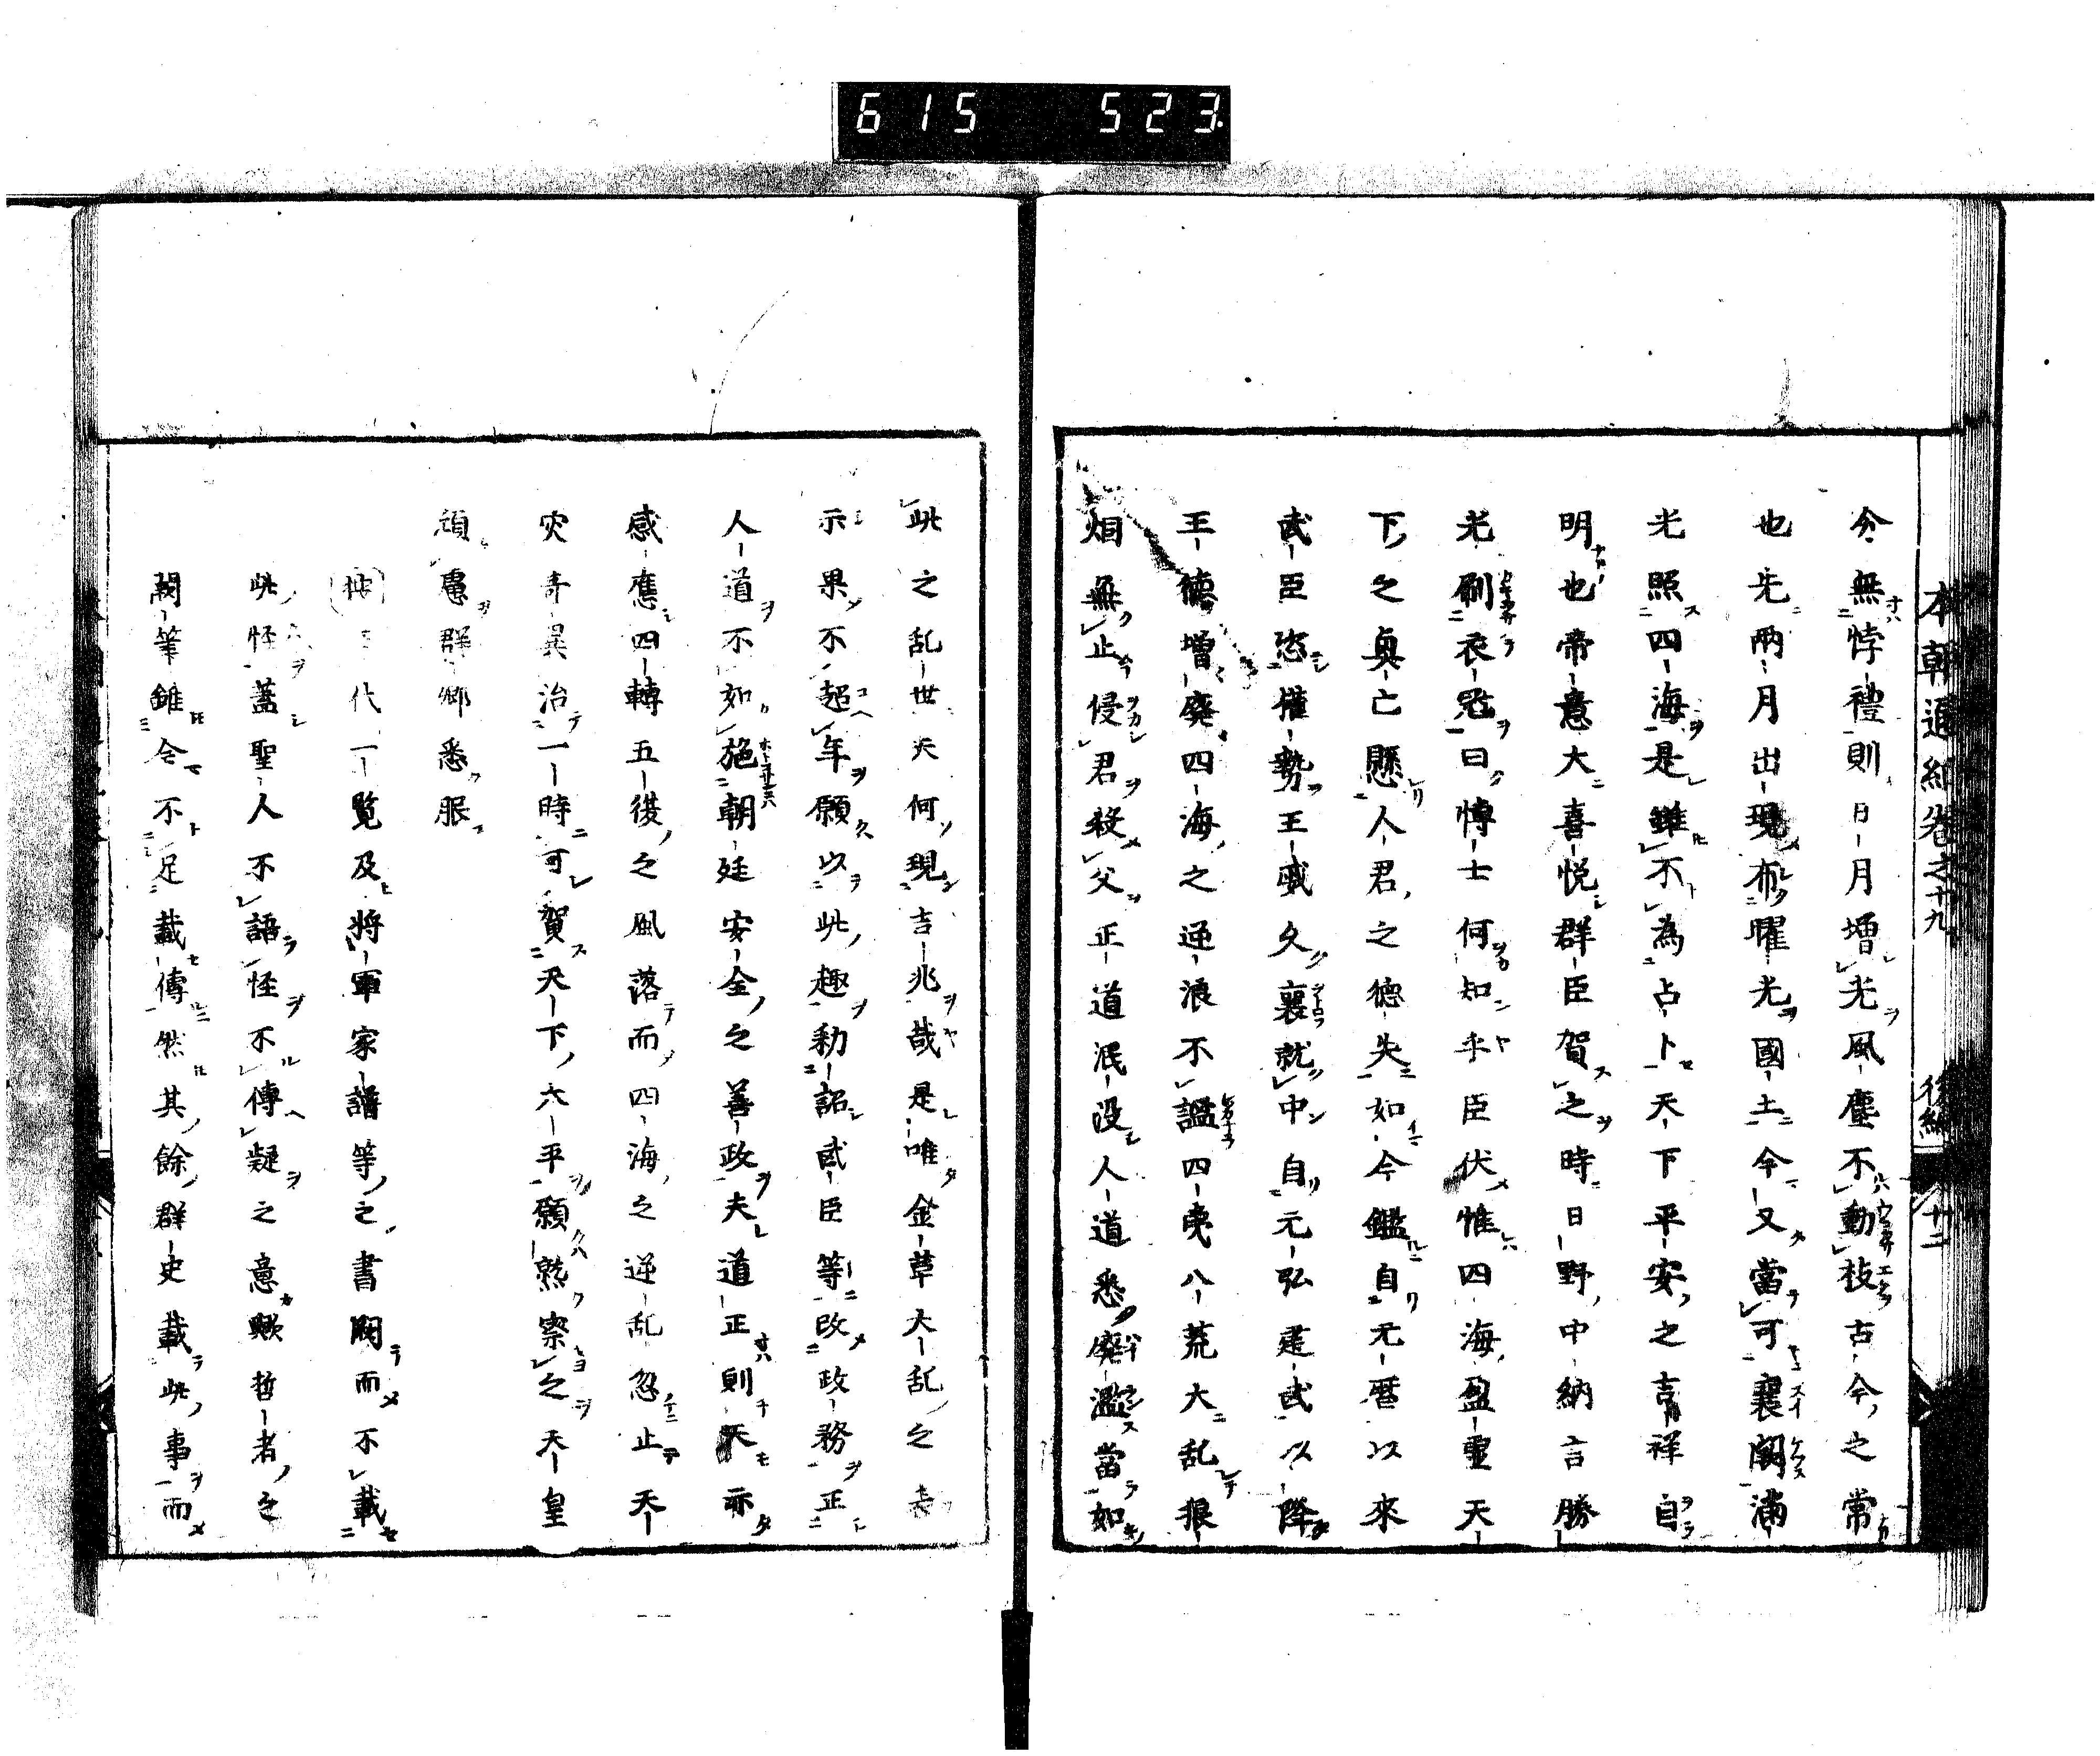 615 523.
本朝通紀卷之十九 後編 十二
今無悖禮則日月增光風塵不動枝古今之常
也先兩月出現布曜光國土今又當可襄闕滿
光照四海是雖不為占卜天下平安之吉祥自
明也帝意大喜悅群臣賀之時日野中納言勝
光刷衣冠曰博士何知乎臣伏惟四海盈聖天
下之真亡懸人君之德失如今鑑自元曆以來
武臣恣權勢王威久襄就中自元弘建武以降
王德增廢四海之逆浪不謐四夷八荒大乱狼
烟無止侵君殺父正道泯没人道悉廢濫當如
此之乱世天何現吉兆哉是唯金革大乱之表
示果不超年願以此趣勅詔武臣等改政務正
人道不如施朝廷安全之善政夫道正則天亦
感應四轉五復之風落而四海之逆乱忽止天
灾奇異治一時可賀天下六平願熟察之天皇
頑慮群卿悉服
三代一覧及將軍家譜等之書闕而不載
此怪蓋聖人不語怪不傳疑之意歟哲者之
閣筆雖令不足載傳然其餘群史載此事而